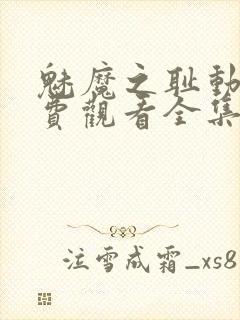 魅魔之耻動
費觀看全集
注雪成霜_xs8